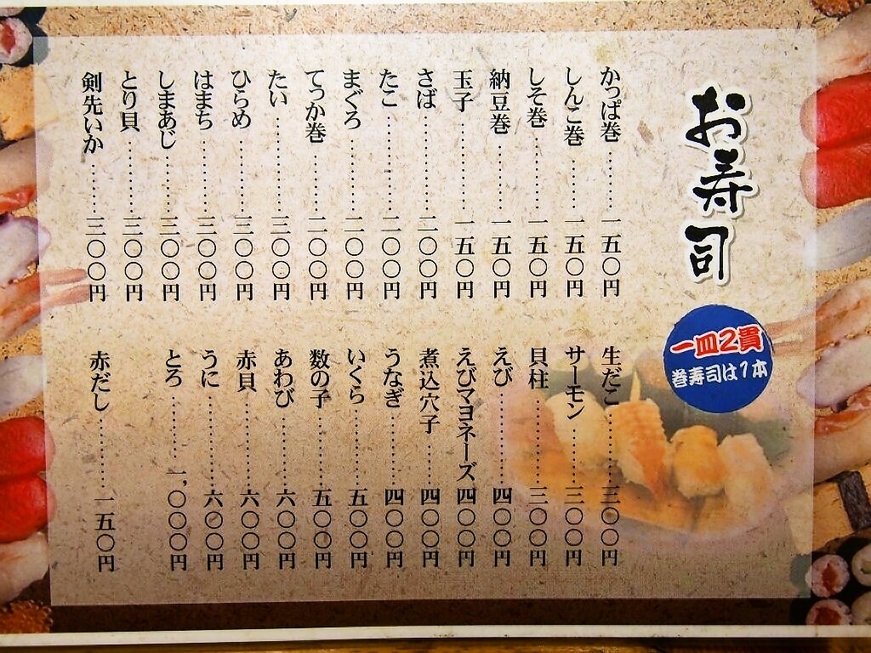 お寿司
一皿2貫
巻寿司は1本
かっぱ巻………一五〇円
しんこ巻………一五〇円
しそ巻………一五〇円
納豆巻………一五〇円
玉子………一五〇円
さば………二〇〇円
たこ………二〇〇円
まぐろ………二〇〇円
てっか巻………二〇〇円
たい………三〇〇円
ひらめ………三〇〇円
はまち………三〇〇円
しまあじ………三〇〇円
とり貝………三〇〇円
剣先いか………三〇〇円
生だこ………三〇〇円
サーモン………三〇〇円
貝柱………三〇〇円
えび………四〇〇円
えびマヨネーズ…四〇〇円
煮込穴子………四〇〇円
うなぎ………四〇〇円
いくら………五〇〇円
数の子………五〇〇円
あわび………六〇〇円
赤貝………六〇〇円
うに………六〇〇円
とろ………一,〇〇〇円
赤だし………一五〇円